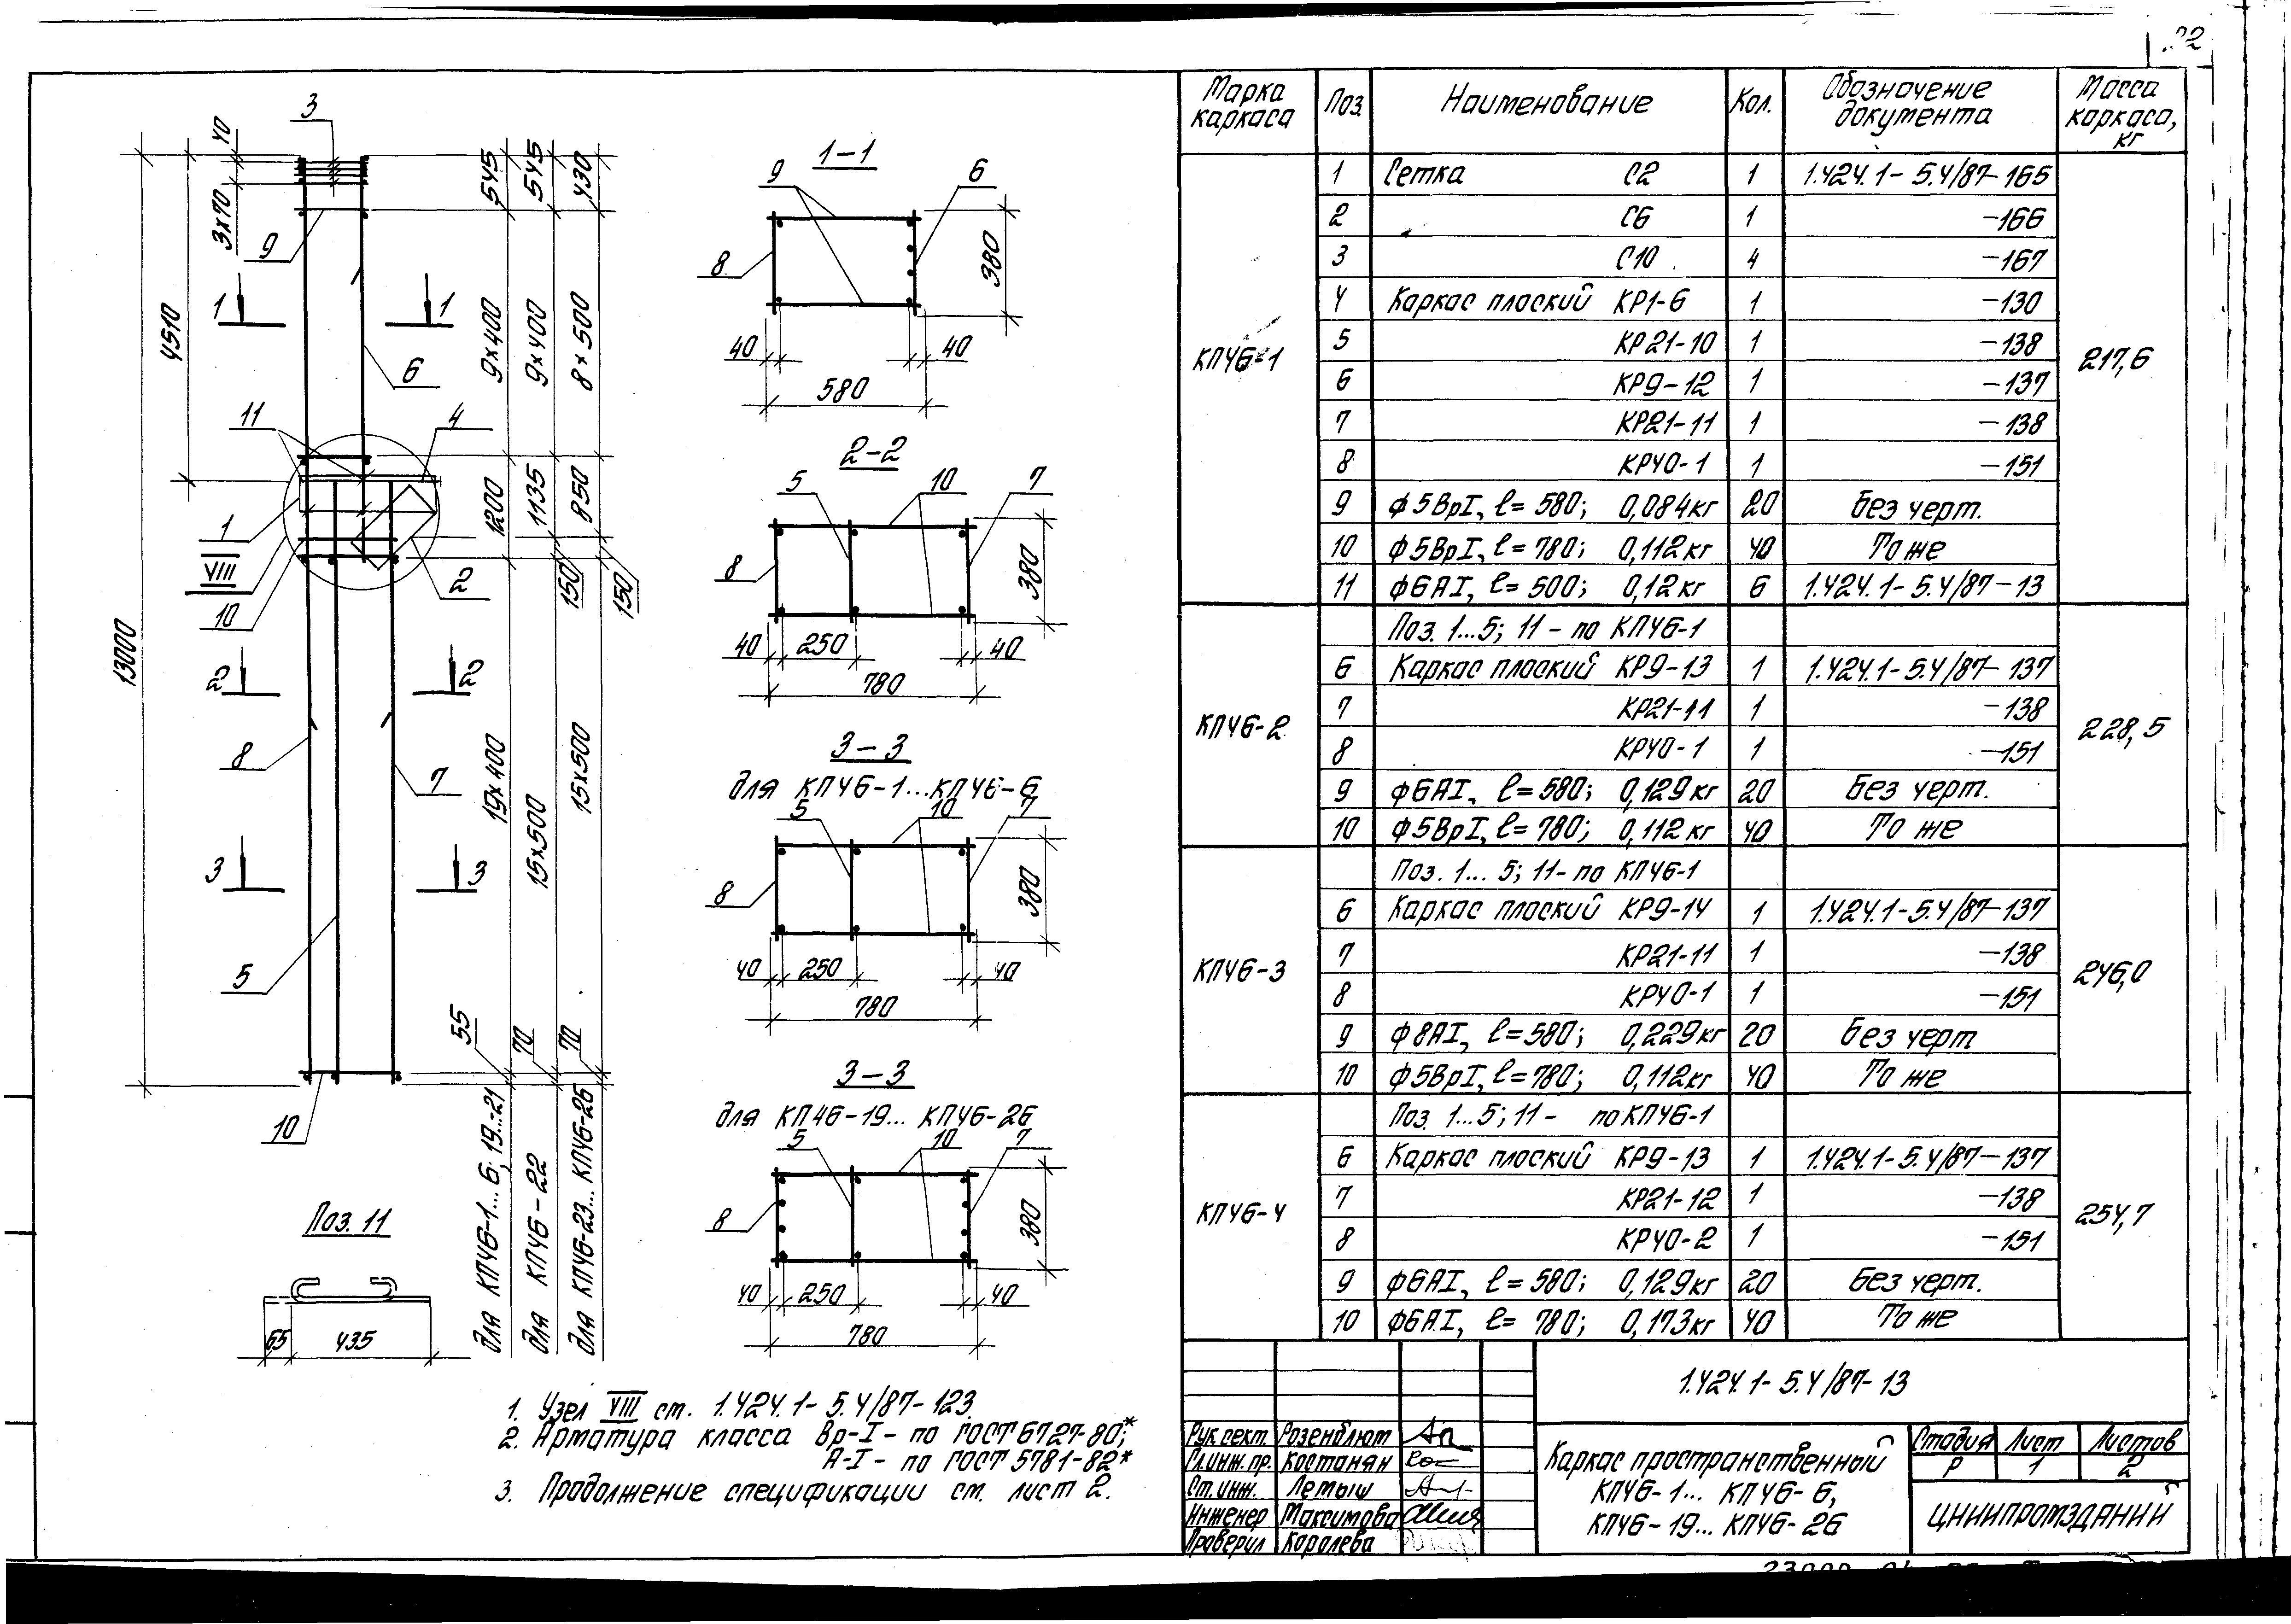 22
Марка каркаса
Поз.
Наименование
Кол.
Обозначение документа
Масса каркаса, кг
КП46-1
1 Сетка С2 1 1.424.1-5.4/87-165
2 С6 1 -166
3 С10 4 -167
4 Каркас плоский КР1-6 1 -130
5 КР21-10 1 -138
6 КР9-12 1 -137
7 КР21-11 1 -138
8 КР40-1 1 -151
9 ф5ВрI, ℓ=580; 0,084кг 20 Без черт.
10 ф5ВрI, ℓ=780; 0,112кг 40 То же
11 ф6АI, ℓ=500; 0,12кг 6 1.424.1-5.4/87-13
217,6
КП46-2
Поз. 1...5; 11 - по КП46-1
6 Каркас плоский КР9-13 1 1.424.1-5.4/87-137
7 КР21-11 1 -138
8 КР40-1 1 -151
9 ф6АI, ℓ=580; 0,129кг 20 Без черт.
10 ф5ВрI, ℓ=780; 0,112кг 40 То же
228,5
КП46-3
Поз. 1...5; 11 - по КП46-1
6 Каркас плоский КР9-14 1 1.424.1-5.4/87-137
7 КР21-11 1 -138
8 КР40-1 1 -151
9 ф8АI, ℓ=580; 0,229кг 20 Без черт
10 ф5ВрI, ℓ=780; 0,112кг 40 То же
246,0
КП46-4
Поз. 1...5; 11 - по КП46-1
6 Каркас плоский КР9-13 1 1.424.1-5.4/87-137
7 КР21-12 1 -138
8 КР40-2 1 -151
9 ф6АI, ℓ=580; 0,129кг 20 Без черт.
10 ф6АI, ℓ=780; 0,173кг 40 То же
254,7
3
40
3х70
9
4510
13000
1 1
6
11
4
1
VIII
10
2
2 2
8
7
3 3
5
10
545 545 430
9х400 9х400 8х500
1200 1135 850
150 150
19х400 15х500 15х500
55 70 70
для КП46-1...6; 19...21
для КП46-22
для КП46-23...КП46-26
1-1
9 6
8
380
40 40
580
2-2
5 10 7
8
380
40 250 40
780
3-3
для КП46-1...КП46-6
5 10 7
8
380
40 250 40
780
3-3
для КП46-19...КП46-26
5 10 7
8
380
40 250 40
780
Поз. 11
65 435
1. Узел VIII см. 1.424.1-5.4/87-123
2. Арматура класса Вр-I - по ГОСТ 6727-80*;
А-I - по ГОСТ 5781-82*
3. Продолжение спецификации см. лист 2.
1.424.1-5.4/87-13
Рук.сект. Розенблюм
Гл.инж.пр. Костанян
Ст.инж. Лемыш
Инженер Максимова
Проверил Королева
Каркас пространственный
КП46-1...КП46-6,
КП46-19...КП46-26
Стадия Лист Листов
Р 1 2
ЦНИИПРОМЗДАНИЙ